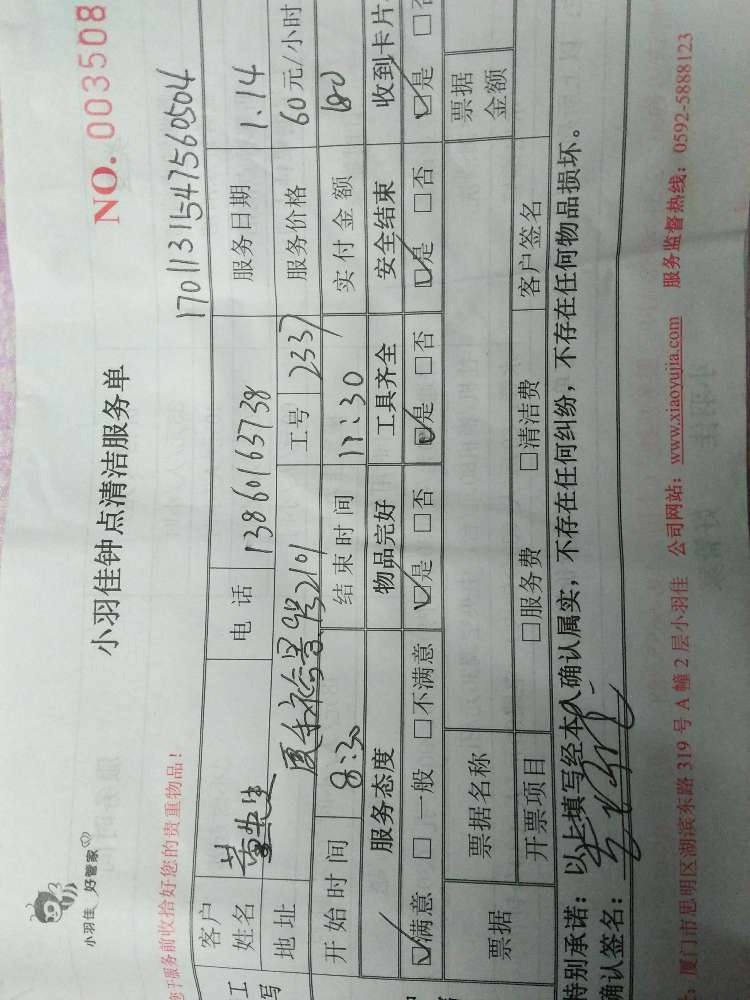 小羽佳 好管家
小羽佳钟点清洁服务单
NO. 003508
于服务前收拾好您的贵重物品!
1701131547560504
客户姓名 电话 13860163738 服务日期 1.14
地址 2101 工号 2337 服务价格 60元/小时
开始时间 8:30 结束时间 11:30 实付金额 180
服务态度 物品完好 工具齐全 安全结束 收到卡片
☑满意 □一般 □不满意 ☑是 □否 ☑是 □否 ☑是 □否 ☑是 □否
票据 票据名称 票据金额
开票项目 □服务费 □清洁费 客户签名
特别承诺:以上填写经本人确认属实,不存在任何纠纷,不存在任何物品损坏。
确认签名:
:厦门市思明区湖滨东路 319 号 A 幢 2 层小羽佳 公司网站:www.xiaoyujia.com 服务监督热线:0592-5888123